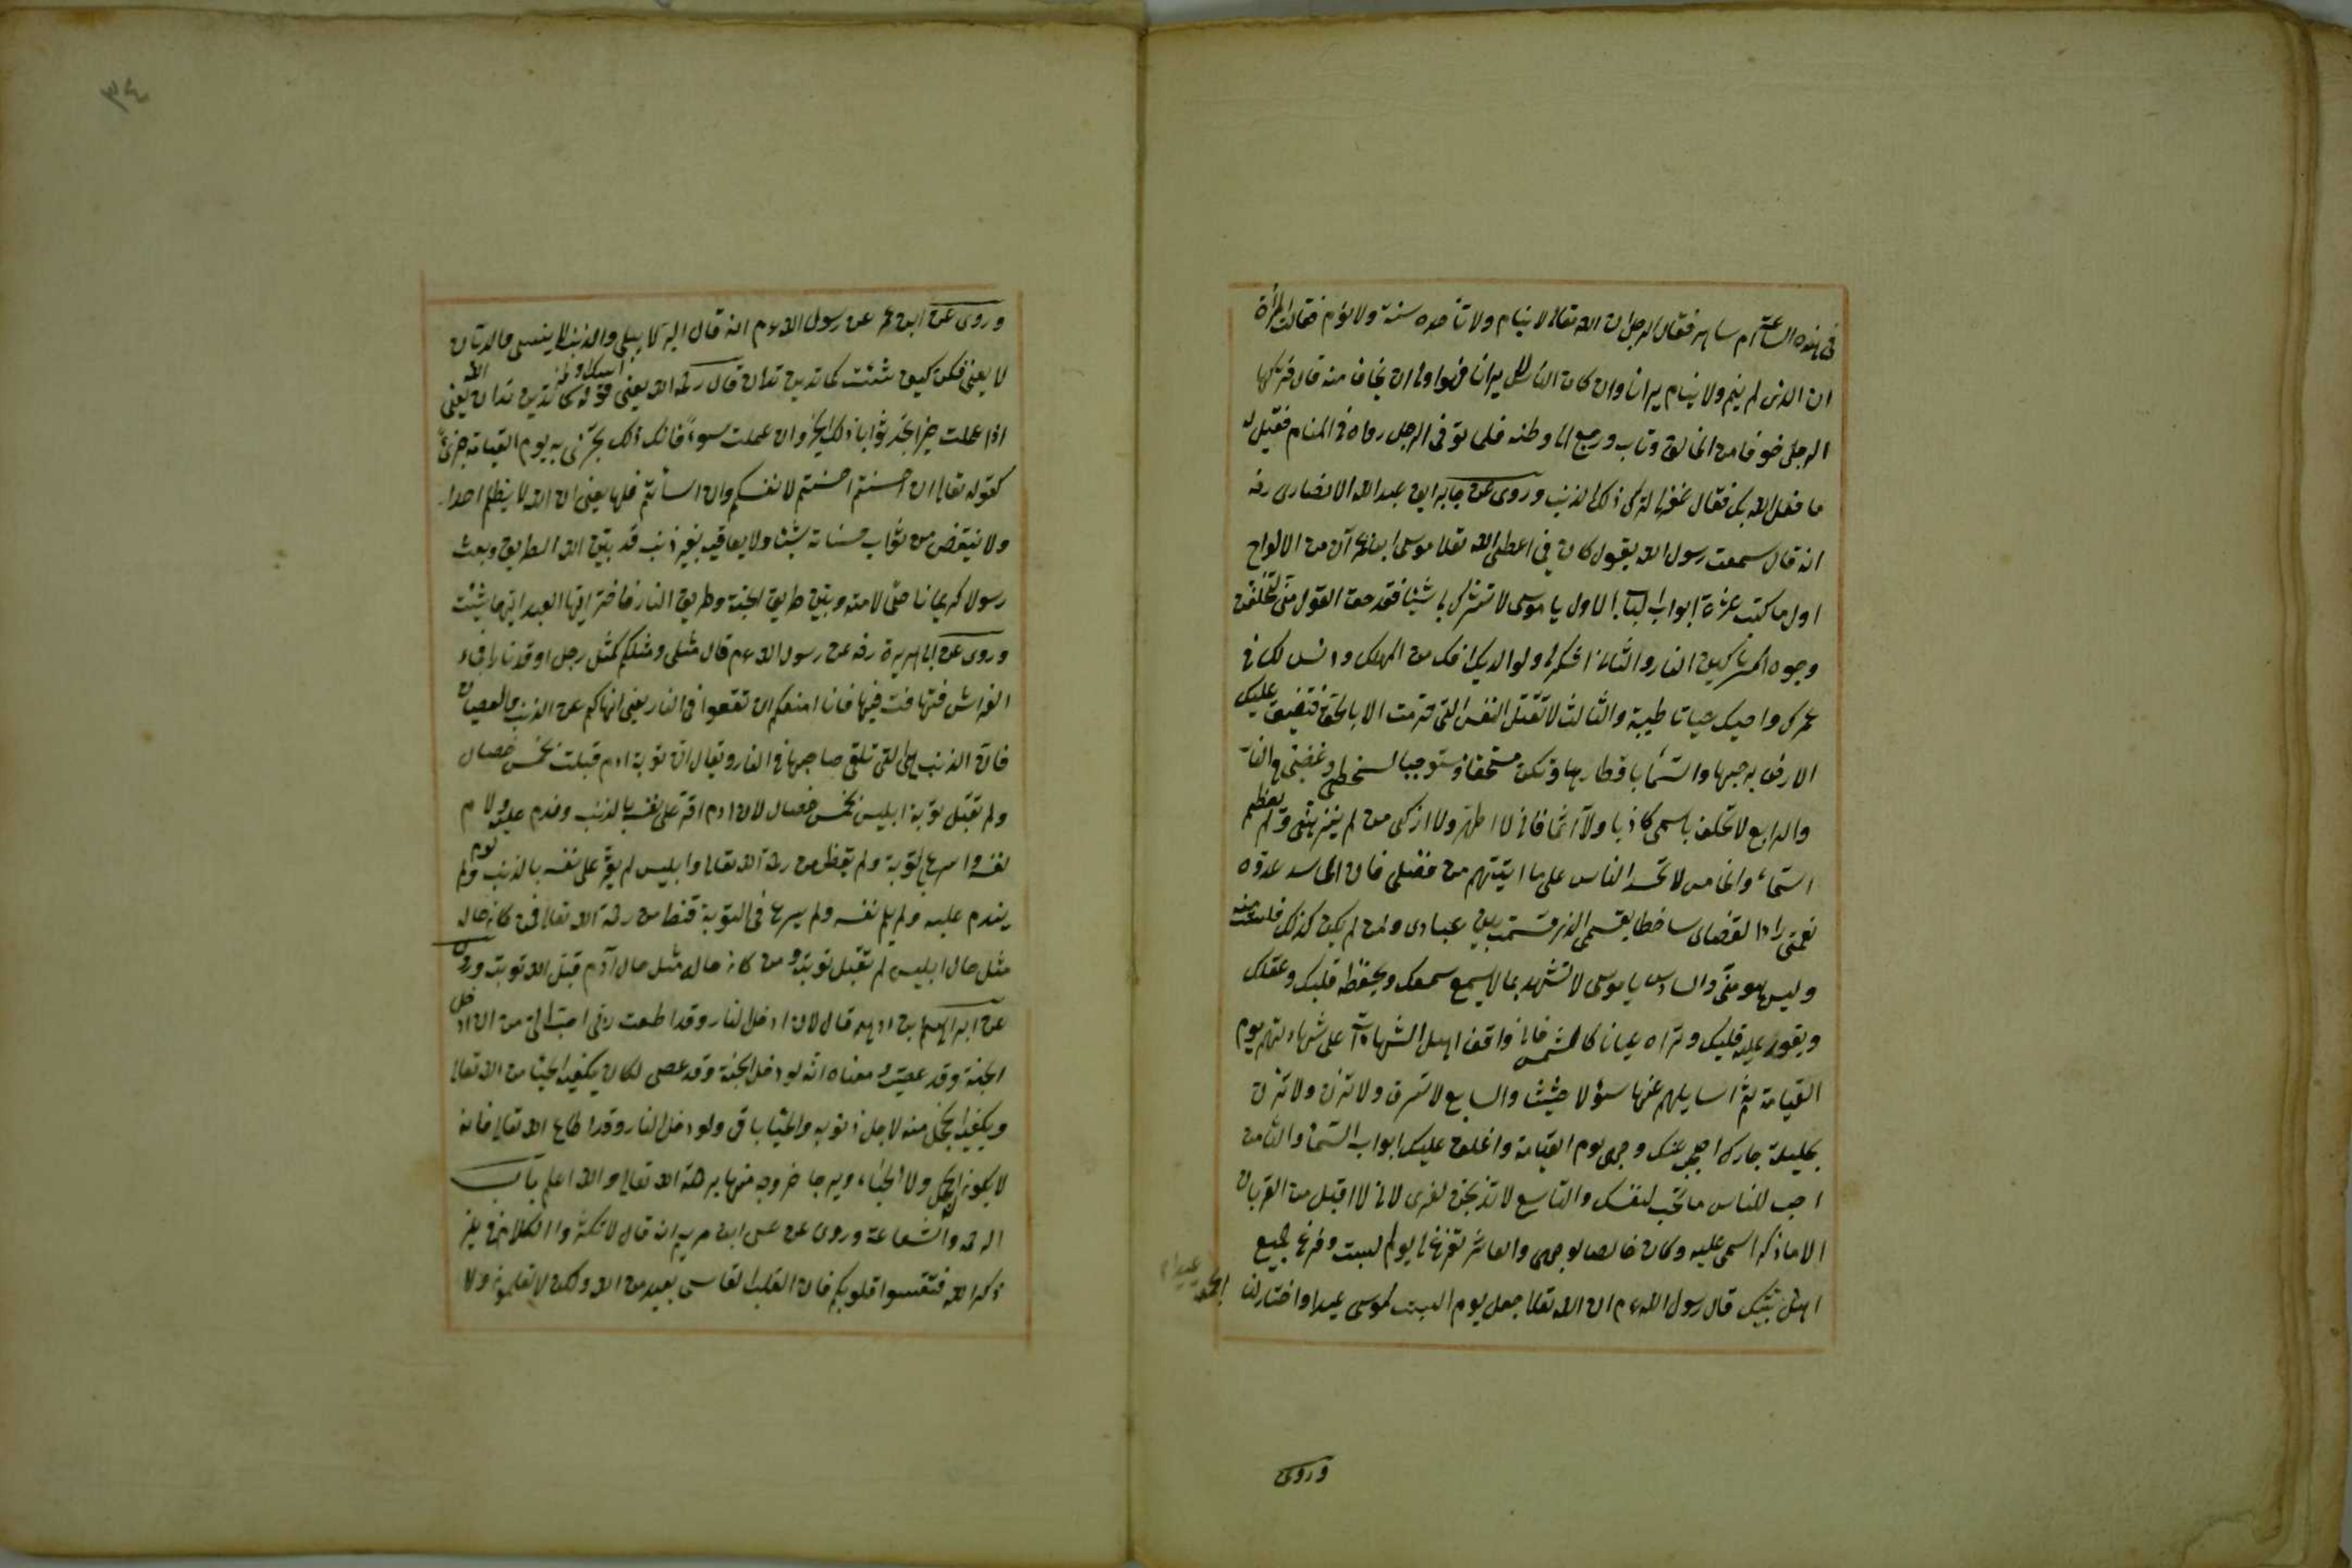 في هذه الساعة ام ساهر فقال الرجل ان الله تعالى لا ينام ولا تأخذه سنة ولا نوم فقالت المرأة
ان الذى لم ينم ولا ينام يرانا وان كان الناس يرانا فهو اولى ان يخاف منه قال فتركها
الرجل خوفا من الخالق وتاب ورجع الى وطنه فلما توفى الرجل رواه في المنام فقيل له
ما فعل الله بك فقال غفر لى لتركى ذلك الذنب وروى عن جابر ابن عبد الله الانصارى رضه
انه قال سمعت رسول الله يقول كان فى اعطى الله تعالى موسى ابن عمرآن من الالواح
اول ما كتب عشرة ابواب الاول يا موسى لا تشرك بى شيئا فقد حق القول منى لتلفحن
وجوه المشركين النار والثانى اشكر لى ولوالديك اقك من المهلك وانس لك فى
عمرك واحيك حياتا طيبة والثالث لا تقتل النفس التى حرمت الا بالحق فتضيق عليك
الارض برحبها والسماء باقطارها وتكن مستحقا مستوجبا لسخطى وغضبى فى النار
والرابع لا تحلف باسمى كاذبا ولا آثما فانى لا اطهر ولا ازكى من لم ينزهنى ولم يعظم
اسمائى والخامس لا تحسد الناس على ما اتيتهم من فضلى فان الحاسد عدو
نعمتى رادا لقضائى ساخطا بقسمى الذى قسمت بين عبادى ومن لم يكن كذلك فلست منه
وليس هو منى والسادس يا موسى لا تشهد بما لا يسمع سمعك ويحفظه قلبك وعقلك
ويعقود عليه قلبك وتراه عيانا كالشمس فانى واقف اهل الشهادة على شهادتهم يوم
القيامة ثم اسايلهم عنها سؤلا حثيثا والسابع لا تسرق ولا تزن ولا تزن
بحليلة جارك احجب عنك وجهى يوم القيامة واغلق عليك ابواب السماء والثامن
احب للناس ما تحب لنفسك والتاسع لا تذبحن لغيرى لانى لا اقبل من القربان
الا ما ذكر اسمى عليه وكان خالصا لوجهى والعاشر تفرغ لى يوم السبت وفرغ جميع
اهل بيتك قال رسول الله عم ان الله تعالى جعل يوم السبت لموسى عيدا واختار لنا
الجمعة عيدا
وروى
٣٤
وروى عن ابن عمر عن رسول الله عم انه قال البر لا يبلى والذنب لا ينسى والديان
لا يفنى فكن كيف شئت كما تدين تدان قال رحمه الله يعنى قوله كما تدين تدان يعنى
اذا عملت خيرا تجد ثوابا ذلك الخير وان عملت سوءً فانك ذلك تجزى به يوم القيامة جزاءً
كقوله تعالى ان احسنتم احسنتم لانفسكم وان اسأتم فلها يعنى ان الله لا يظلم احدا
ولا ينقص من ثواب حسناته شيئا ولا يعاقب بغير ذنب قد بين الله الطريق وبعث
رسولا كريما ناصحا لامته وبين طريق الجنة وطريق النار فاختر ايها العبد ايهما شئت
وروى عن ابى هريرة رضه عن رسول الله عم قال مثلى ومثلكم كمثل رجل اوقد نارا فجاء
الفراش فتهافت فيها فانا امنعكم ان تقعوا فى النار يعنى انهاكم عن الذنب والعصيان
فان الذنب التى تلقى صاحبها فى النار ويقال ان توبة ادم قبلت بخمس خصال
ولم تقبل توبة ابليس بخمس خصال لان ادم اقر على نفسه بالذنب وندم عليه ولام
نفسه واسرع التوبة ولم يقنط من رحمة الله تعالى وابليس لم يقر على نفسه بالذنب ولم
يندم عليه ولم يلم نفسه ولم يسرع فى التوبة قنط من رحمة الله تعالى فمن كانه حاله
مثل حال ابليس لم تقبل توبته ومن كانه حاله مثل حال آدم قبل الله توبته وروى
عن ابراهيم بن ادهم قال لان ادخل النار وقد اطعت ربى احب الى من ان ادخل
الجنة وقد عصيته ومعناه انه لو دخل الجنة وقد عصى لكان يكفيه الحياء من الله تعالى
ويكفيه الخجل منه لاجل ذنوبه والحياء باق ولو دخل النار وقد اطاع الله تعالى فانه
لا يكون الخجل ولا الحياء ويرجا خروجه منها برحمة الله تعالى والله اعلم باب
الرحمة والشفاعة وروى عن عيسى ابن مريم انه قال لا تكثروا الكلام فى غير
ذكر الله فتقسوا قلوبكم فان القلب القاسى بعيد من الله ولكن لا تعلمون ولا